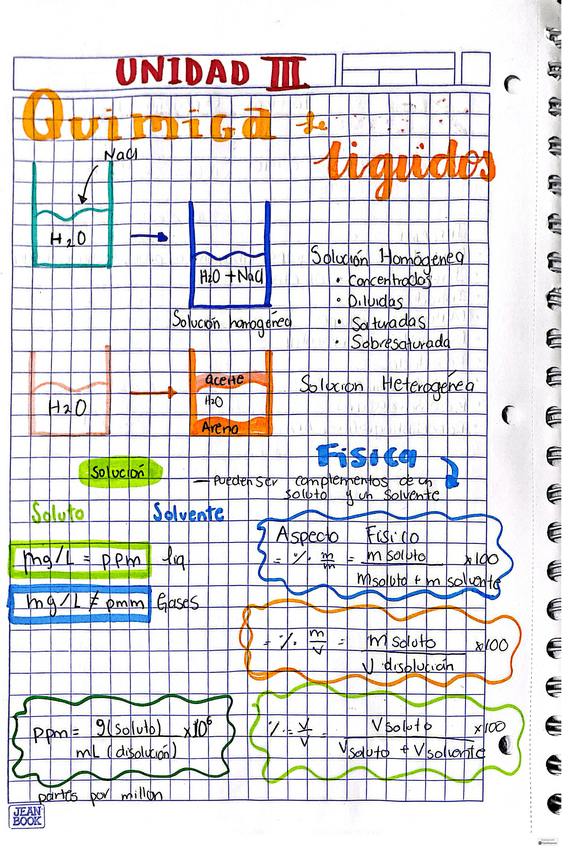 UNIDAD III
Quimica de
liquidos
NaCl
H2O
H2O + NaCl
Solución homogénea
Solución Homógenea
• Concentrados
• Diluidas
• Saturadas
• Sobresaturada
H2O
aceite
H2O
Arena
Solución Heterogénea
Solución
Fisica
— Pueden ser complementos de un
soluto y un solvente
Soluto
Solvente
mg/L = ppm liq
mg/L ≠ pmm Gases
Aspecto Físico
= % m/m = m soluto / m soluto + m solvente x100
= % m/v = m soluto / V disolución x100
ppm = g(soluto) / mL (disolución) x10⁶
partes por millon
% = V/V = V soluto / V soluto + V solvente x100
JEAN
BOOK